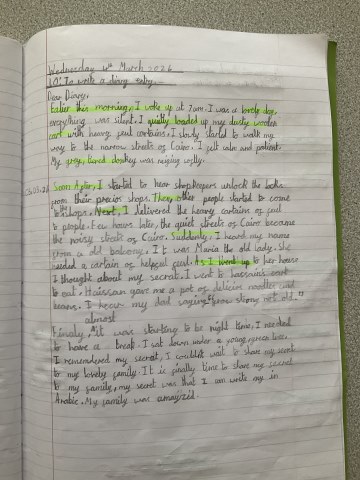 Wednesday 4th March 2026
LO: To write a diary entry.
Dear Diary,
Ealier this morning, I woke up at 7am. I was a lovely day,
everything was silent. I quitly loaded up my dusty wooden
cart with heavy fuel containers, I slowly started to walk my
way to the narrow streets of Cairo. I felt calm and patient.
My grey, tired donkey was
Soon After, I started to hear shopkeepers unlock the locks
from their precios shops. Then, other people started to come
to the shops. Next, I delivered the heavy of fuel
to people. Few hours later, the quiet streets of Cairo became
the noisy streets of Cairo. Suddenly, I heard my name
from a old balcony, I it was Maria the old lady. She
needed a of fuel. As I lived up to her house
I thought about my secret. I went to hassain's cart
to eat. Hassan gave me a pot of delicios noodles and
beans. I hear my dad saying "grow strong not old."
almost
Finaly, it was starting to be night time, I needed
to have a break. I sat down under a young green tree.
I remembered my secret, I couldn't wait to share my secret
to my lovely family. It is finally time to share my secret
to my family, my secret was that I can write my in
Arabic. My family was amayzed.